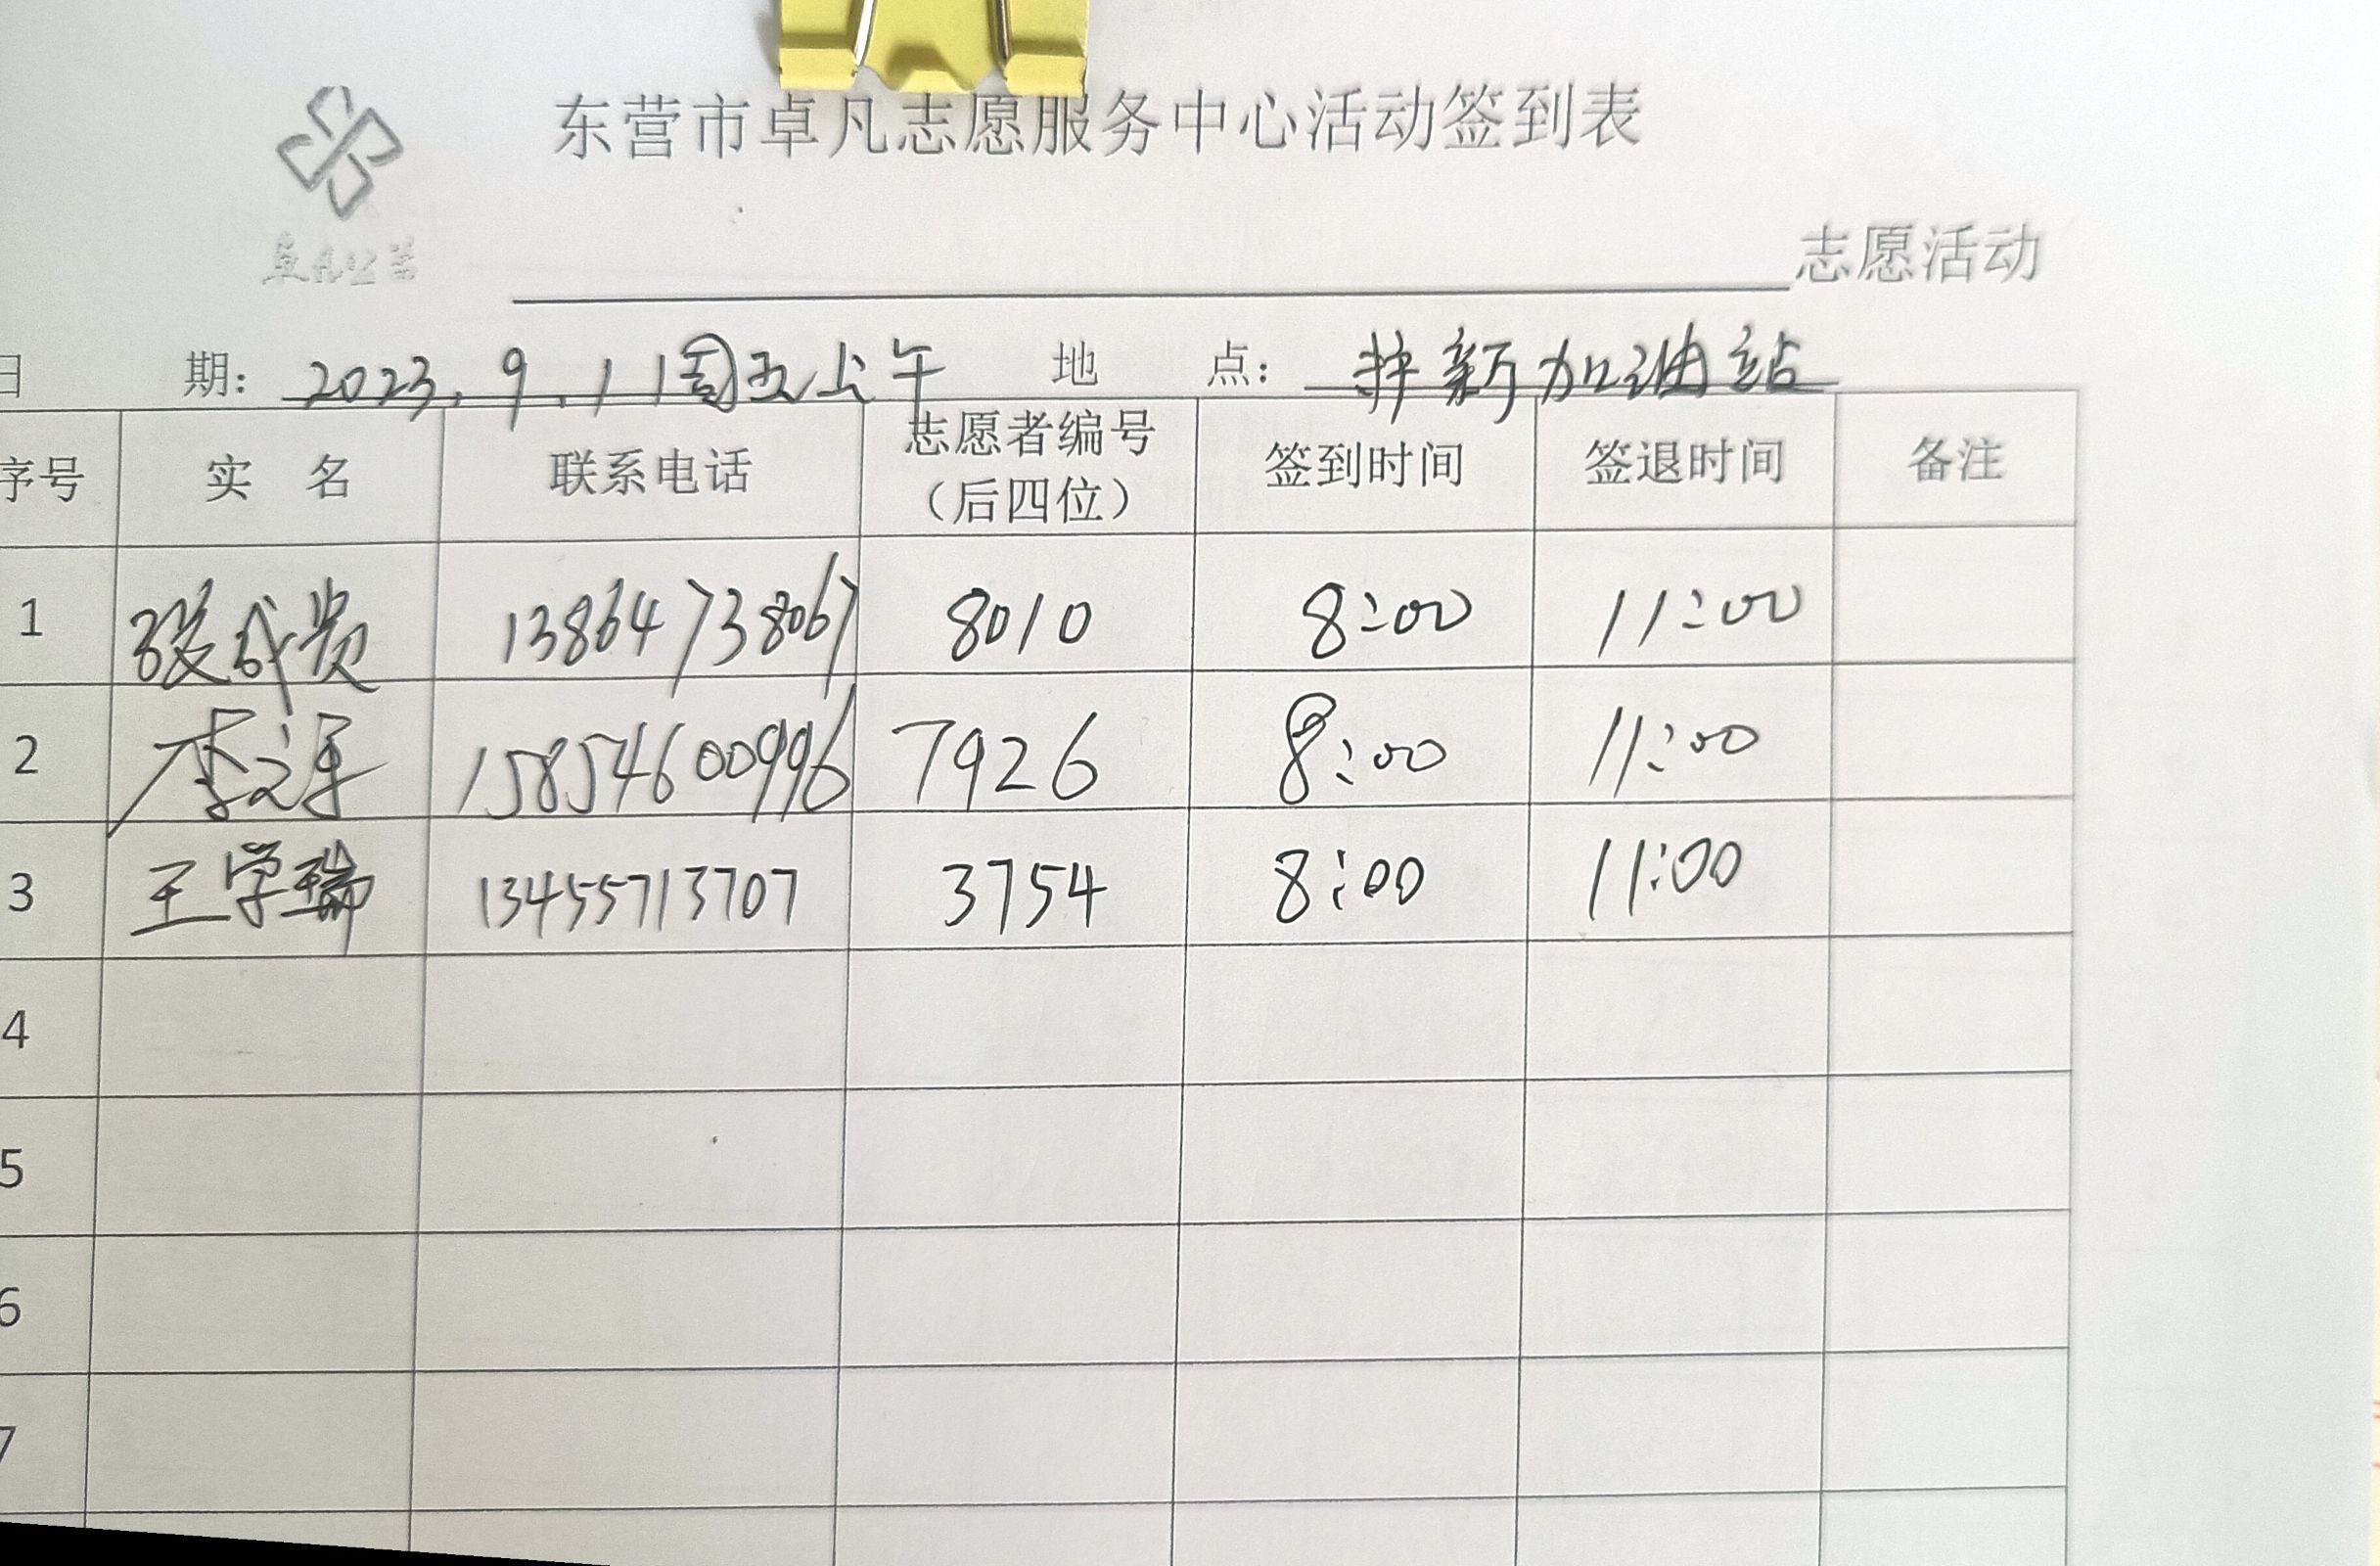 东营市卓凡志愿服务中心活动签到表
卓凡公益
志愿活动
日 期: 2023.9.11周五上午 地 点: 新加油站
序号 实 名 联系电话 志愿者编号（后四位） 签到时间 签退时间 备注
1 张成贵 13864738067 8010 8:00 11:00
2 李 15854600996 7926 8:00 11:00
3 王学瑞 13455713707 3754 8:00 11:00
4
5
6
7